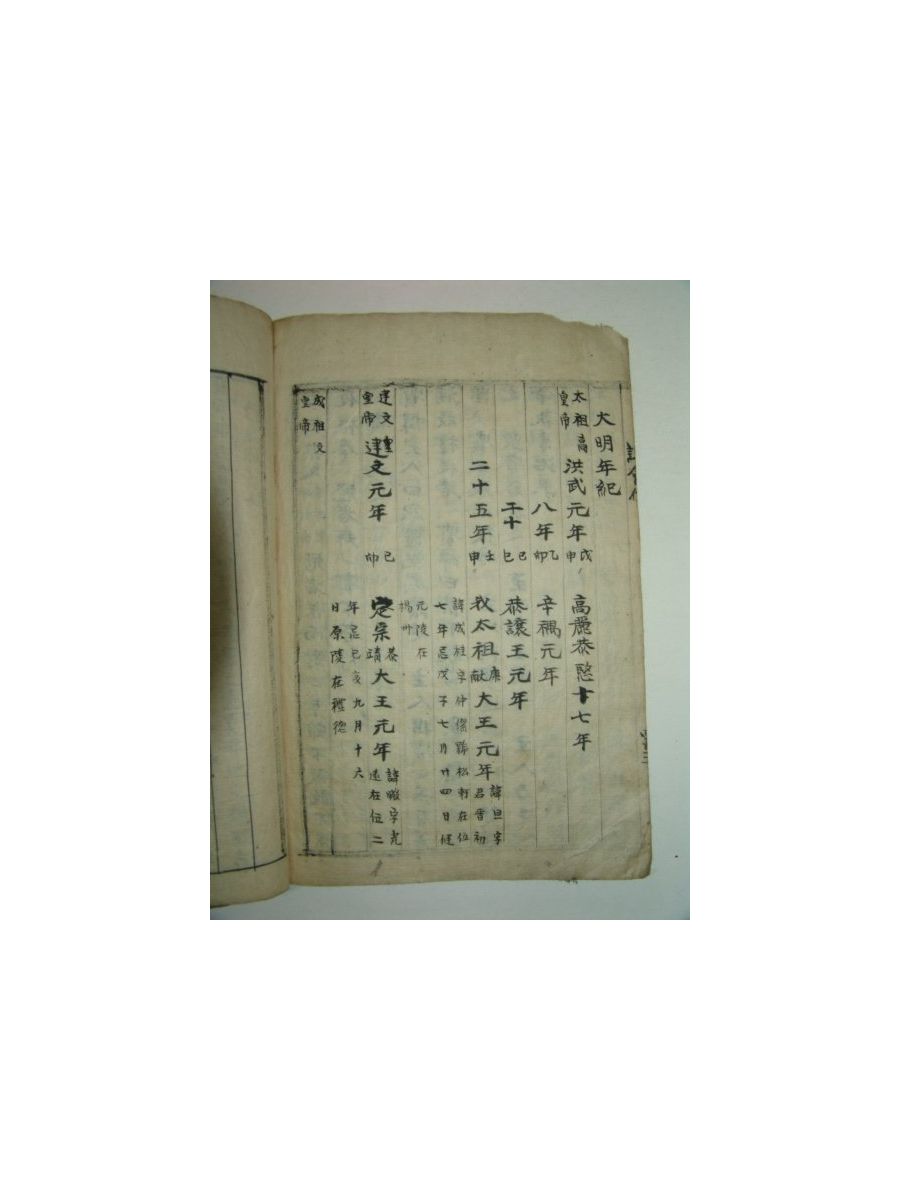 大明年紀
太祖高皇帝 洪武元年 戊申 高麗恭愍十七年
八年 乙卯 辛禑元年
二十 己巳 恭讓王元年
二十五年 壬申 我太祖康獻大王元年 諱旦字君晋初
諱成桂字仲傑號松軒在位
七年忌戊子七月廿四日健
元陵在
楊州
建文皇帝 建文元年 己卯 定宗恭靖大王元年 諱曔字光遠在位二
年忌己亥九月十六
日厚陵在禮德
成祖文皇帝